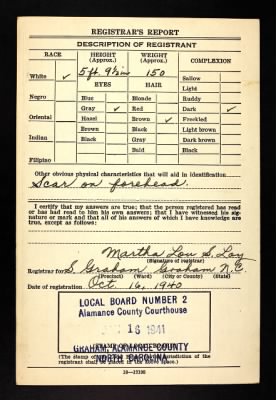 REGISTRAR'S REPORT
DESCRIPTION OF REGISTRANT
RACE HEIGHT (Approx.) WEIGHT (Approx.) COMPLEXION
White ✓ 5 ft. 9½ in 150 Sallow
EYES HAIR Light
Negro Blue Blonde Ruddy
Gray ✓ Red Dark ✓
Oriental Hazel Brown ✓ Freckled
Brown Black Light brown
Indian Black Gray Dark brown
Bald Black
Filipino
Other obvious physical characteristics that will aid in identification
Scar on forehead.
I certify that my answers are true; that the person registered has read
or has had read to him his own answers; that I have witnessed his sig-
nature or mark and that all of his answers of which I have knowledge
are true, except as follows:
Martha Lou S. Loy
(Signature of registrar)
Registrar for S. Graham, Graham N.C.
(Precinct) (Ward) (City or County) (State)
Date of registration Oct. 16, 1940
LOCAL BOARD NUMBER 2
Alamance County Courthouse
16 1941
GRAHAM, ALAMANCE COUNTY
NORTH CAROLINA
(The stamp of the Local Board having jurisdiction of the
registrant shall be placed in the above space.)